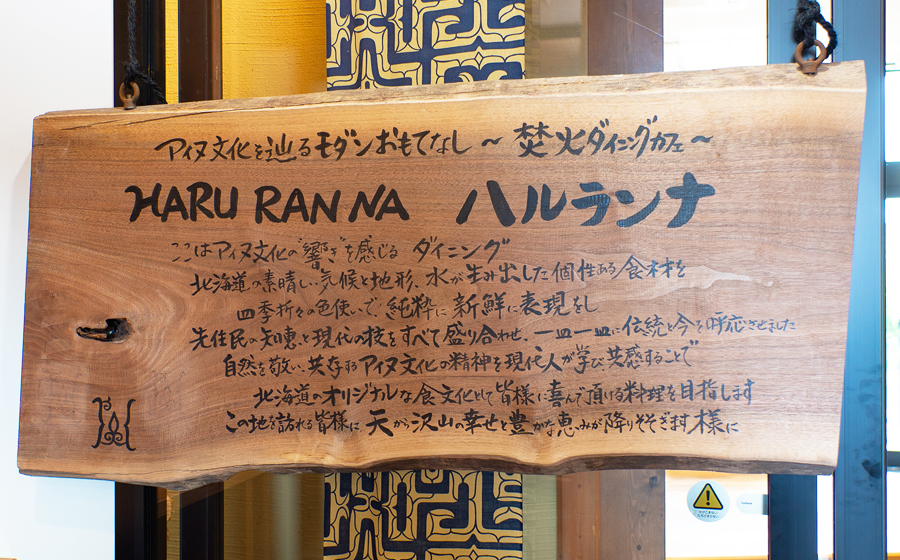 アイヌ文化を辿るモダンおもてなし ~ 焚火ダイニングカフェ ~
HARU RAN NA ハルランナ
ここはアイヌ文化の"響き"を感じる ダイニング
北海道の素晴しい気候と地形、水が生み出した個性ある食材を
四季折々の色使いで、純粋に新鮮に表現をし
先住民の知恵と現代の技をすべて盛り合わせ、一皿一皿に伝統と今を呼応させました
自然を敬い、共存するアイヌ文化の精神を現代人が学び、共感することで
北海道のオリジナルな食文化として皆様に喜んで頂ける料理を目指します
この地を訪れる皆様に 天から沢山の幸せと豊かな恵みが降りそそぎます様に